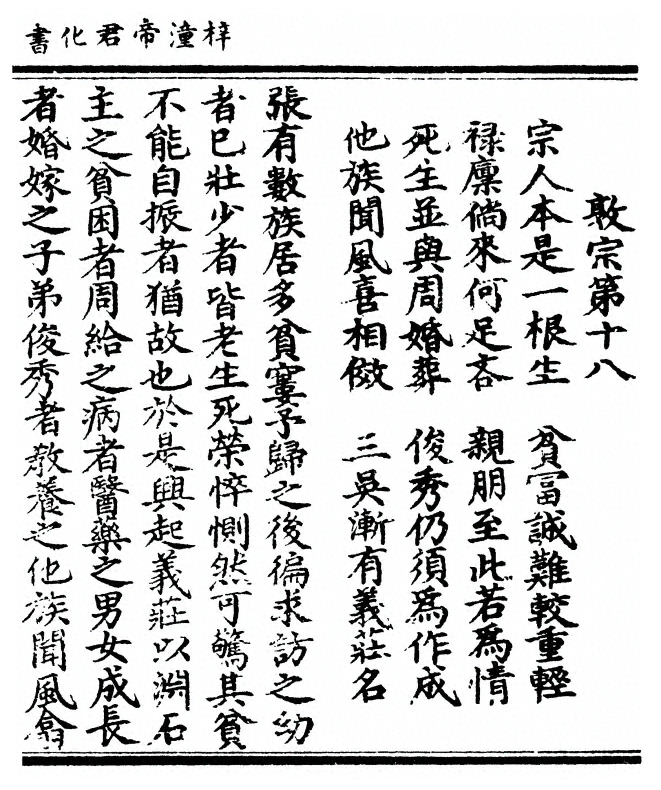 梓潼帝君化書
敦宗第十八
宗人本是一根生　貧富誠難較重輕
禄廩倘來何足吝　親朋至此若爲情
死生並與周婚葬　俊秀仍須爲作成
他族聞風喜相傚　三吳漸有義莊名
張有數族居多貧窶予歸之後徧求訪之幼
者已壯少者皆老生死榮悴惻然可驚其貧
不能自振者猶故也於是興起義莊以淵石
主之貧困者周給之病者醫藥之男女成長
者婚嫁之子弟俊秀者教養之他族聞風翕